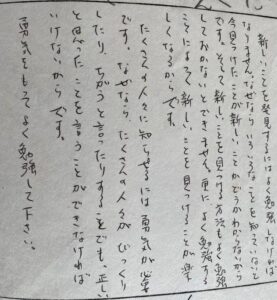 新しいことを発見するにはよく勉強しなければ
なりません。なぜなら、いろいろなことを知っていないと
今見つけたことが新しいことかどうかわからないから
です。そして新しいことを見つける方法もよく勉強
しておかないとできません。更によく勉強する
ことによって新しいことを見つけることが楽
しくなるからです。
たくさんの人々に知らせるには勇気が必要
です。なぜなら、たくさんの人々がびっくり
したり、ちがうと言ったりすることでも、正しい
と思ったことを言うことができなければ
いけないからです。
勇気をもってよく勉強して下さい。